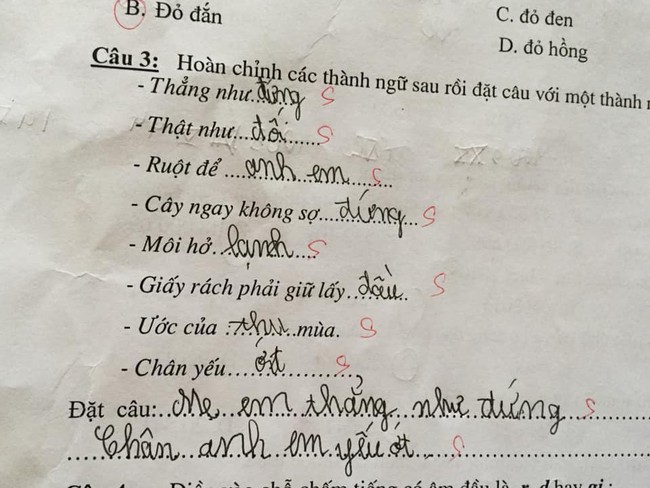 B. Đỏ đắn
C. đỏ đen
D. đỏ hồng
Câu 3: Hoàn chỉnh các thành ngữ sau rồi đặt câu với một thành
- Thẳng như...đứng S
- Thật như...đố....... S
- Ruột để ....anh..em...... S
- Cây ngay không sợ....đứng... S
- Môi hở..lạnh.... S
- Giấy rách phải giữ lấy..đầu.. S
- Ước của .thu..mùa. S
- Chân yếu ...ớt............ S
Đặt câu:..Mẹ..em thẳng...như đứng........ S
.....Chân...anh em yếu ớt................ S